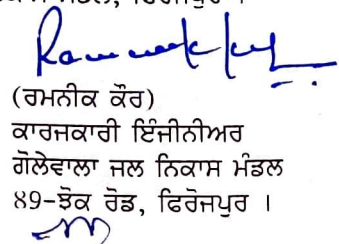 ਮੰਡਲ, ਫਿਰੋਜਪੁਰ ।
(ਰਮਨੀਕ ਕੌਰ)
ਕਾਰਜਕਾਰੀ ਇੰਜੀਨੀਅਰ
ਗੋਲੇਵਾਲਾ ਜਲ ਨਿਕਾਸ ਮੰਡਲ
੪9-ਝੋਕ ਰੋਡ, ਫਿਰੋਜਪੁਰ ।